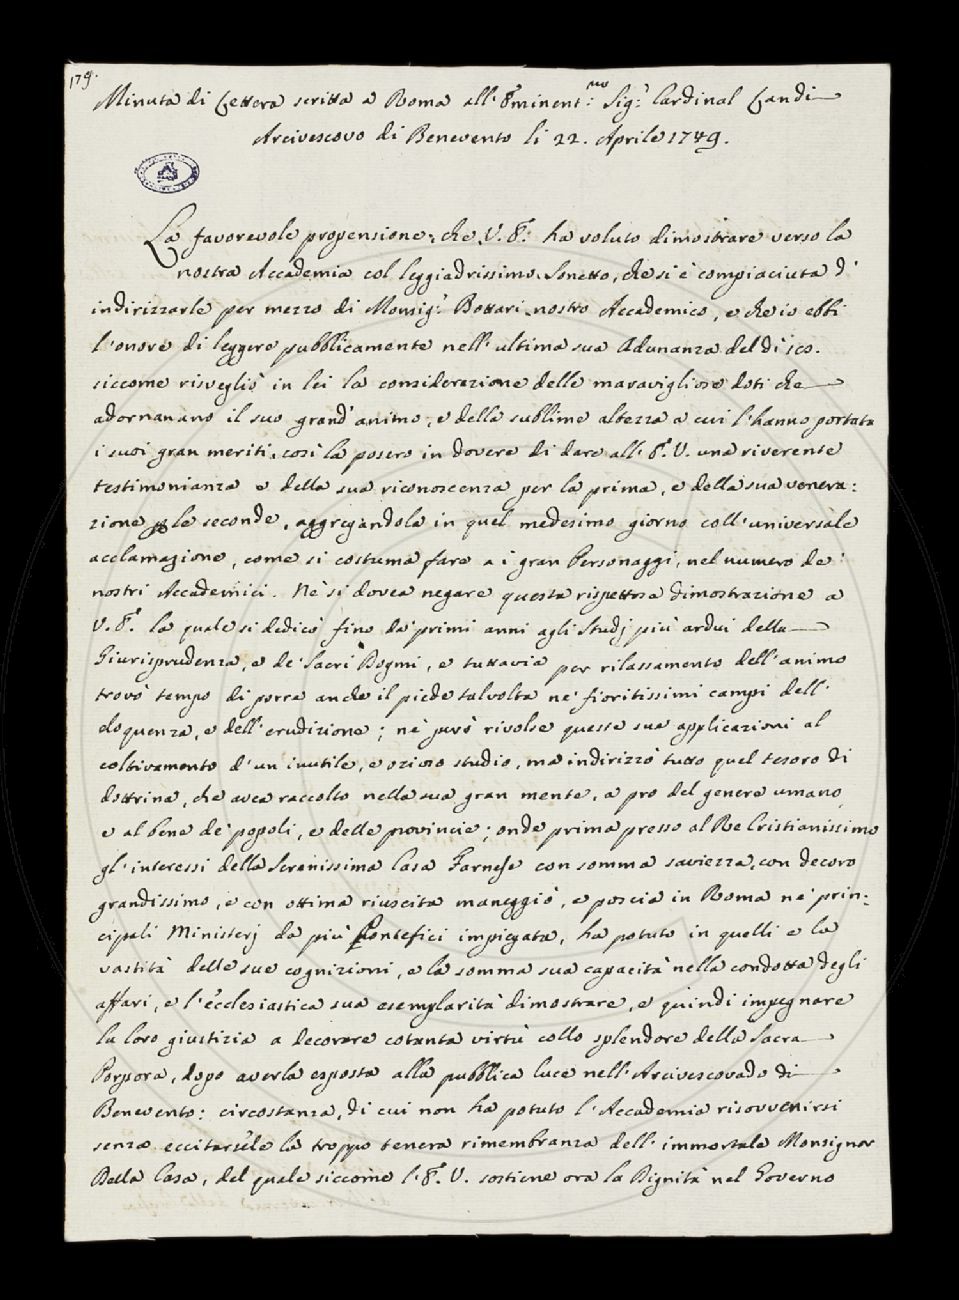 179.
Minuta di Lettera scritta a Roma all' Eminent.mo Sig.r Cardinal Landi
Arcivescovo di Benevento li 22. Aprile 1749.
La favorevole propensione, che V. E. ha voluto dimostrare verso la
nostra Accademia col leggiadrissimo Sonetto, che si è compiaciuta d'
indirizzarle per mezzo di Monsig.r Bottari nostro Accademico, e che io ebbi
l'onore di leggere pubblicamente nell'ultima sua Adunanza del dì
siccome risvegliò in lei la considerazione delle maravigliose doti che
adornanano il suo grand'animo, e della sublime altezza a cui l'hanno portata
i suoi gran meriti, così la posero in dovere di dare all' E. V. una riverente
testimonianza e della sua riconoscenza per la prima, e della sua venera:
zione le seconde, aggregandola in quel medesimo giorno coll'universale
acclamazione, come si costuma fare a i gran Personaggi, nel numero de'
nostri Accademici. Nè si dovea negare questa rispettosa dimostrazione a
V. E. la quale si dedicò fino da' primi anni agli Studj più ardui della
Giurisprudenza, e de' Sacri Dogmi, e tuttavia per rilassamento dell'animo
trovò tempo di porre anche il piede talvolta ne' fioritissimi campi dell'
eloquenza, e dell'erudizione; nè però rivolse queste sue applicazioni al
coltivamento d'un inutile, e ozioso studio, ma indirizzò tutto quel tesoro di
dottrina, che avea raccolto nella sua gran mente, a pro del genere umano,
e al bene de' popoli, e delle provincie; onde prima presso al Re Cristianissimo
gl'interessi della Serenissima Casa Farnese con somma saviezza, con decoro
grandissimo, e con ottima riuscita maneggiò, e poscia in Roma ne' prin:
cipali Ministerj da più Pontefici impiegata, ha potuto in quelli e la
vastità delle sue cognizioni, e la somma sua capacità nella condotta degli
affari, e l'ecclesiastica sua esemplarità dimostrare, e quindi impegnare
la loro giustizia a decorare cotanta virtù collo splendore della Sacra
Porpora, dopo averla esposta alla pubblica luce nell'Arcivescovado di
Benevento: circostanza, di cui non ha potuto l'Accademia risovvenirsi
senza eccitarsele la troppo tenera rimembranza dell'immortale Monsignor
Della Casa, del quale siccome l'E. V. sostiene ora la Dignità nel Governo